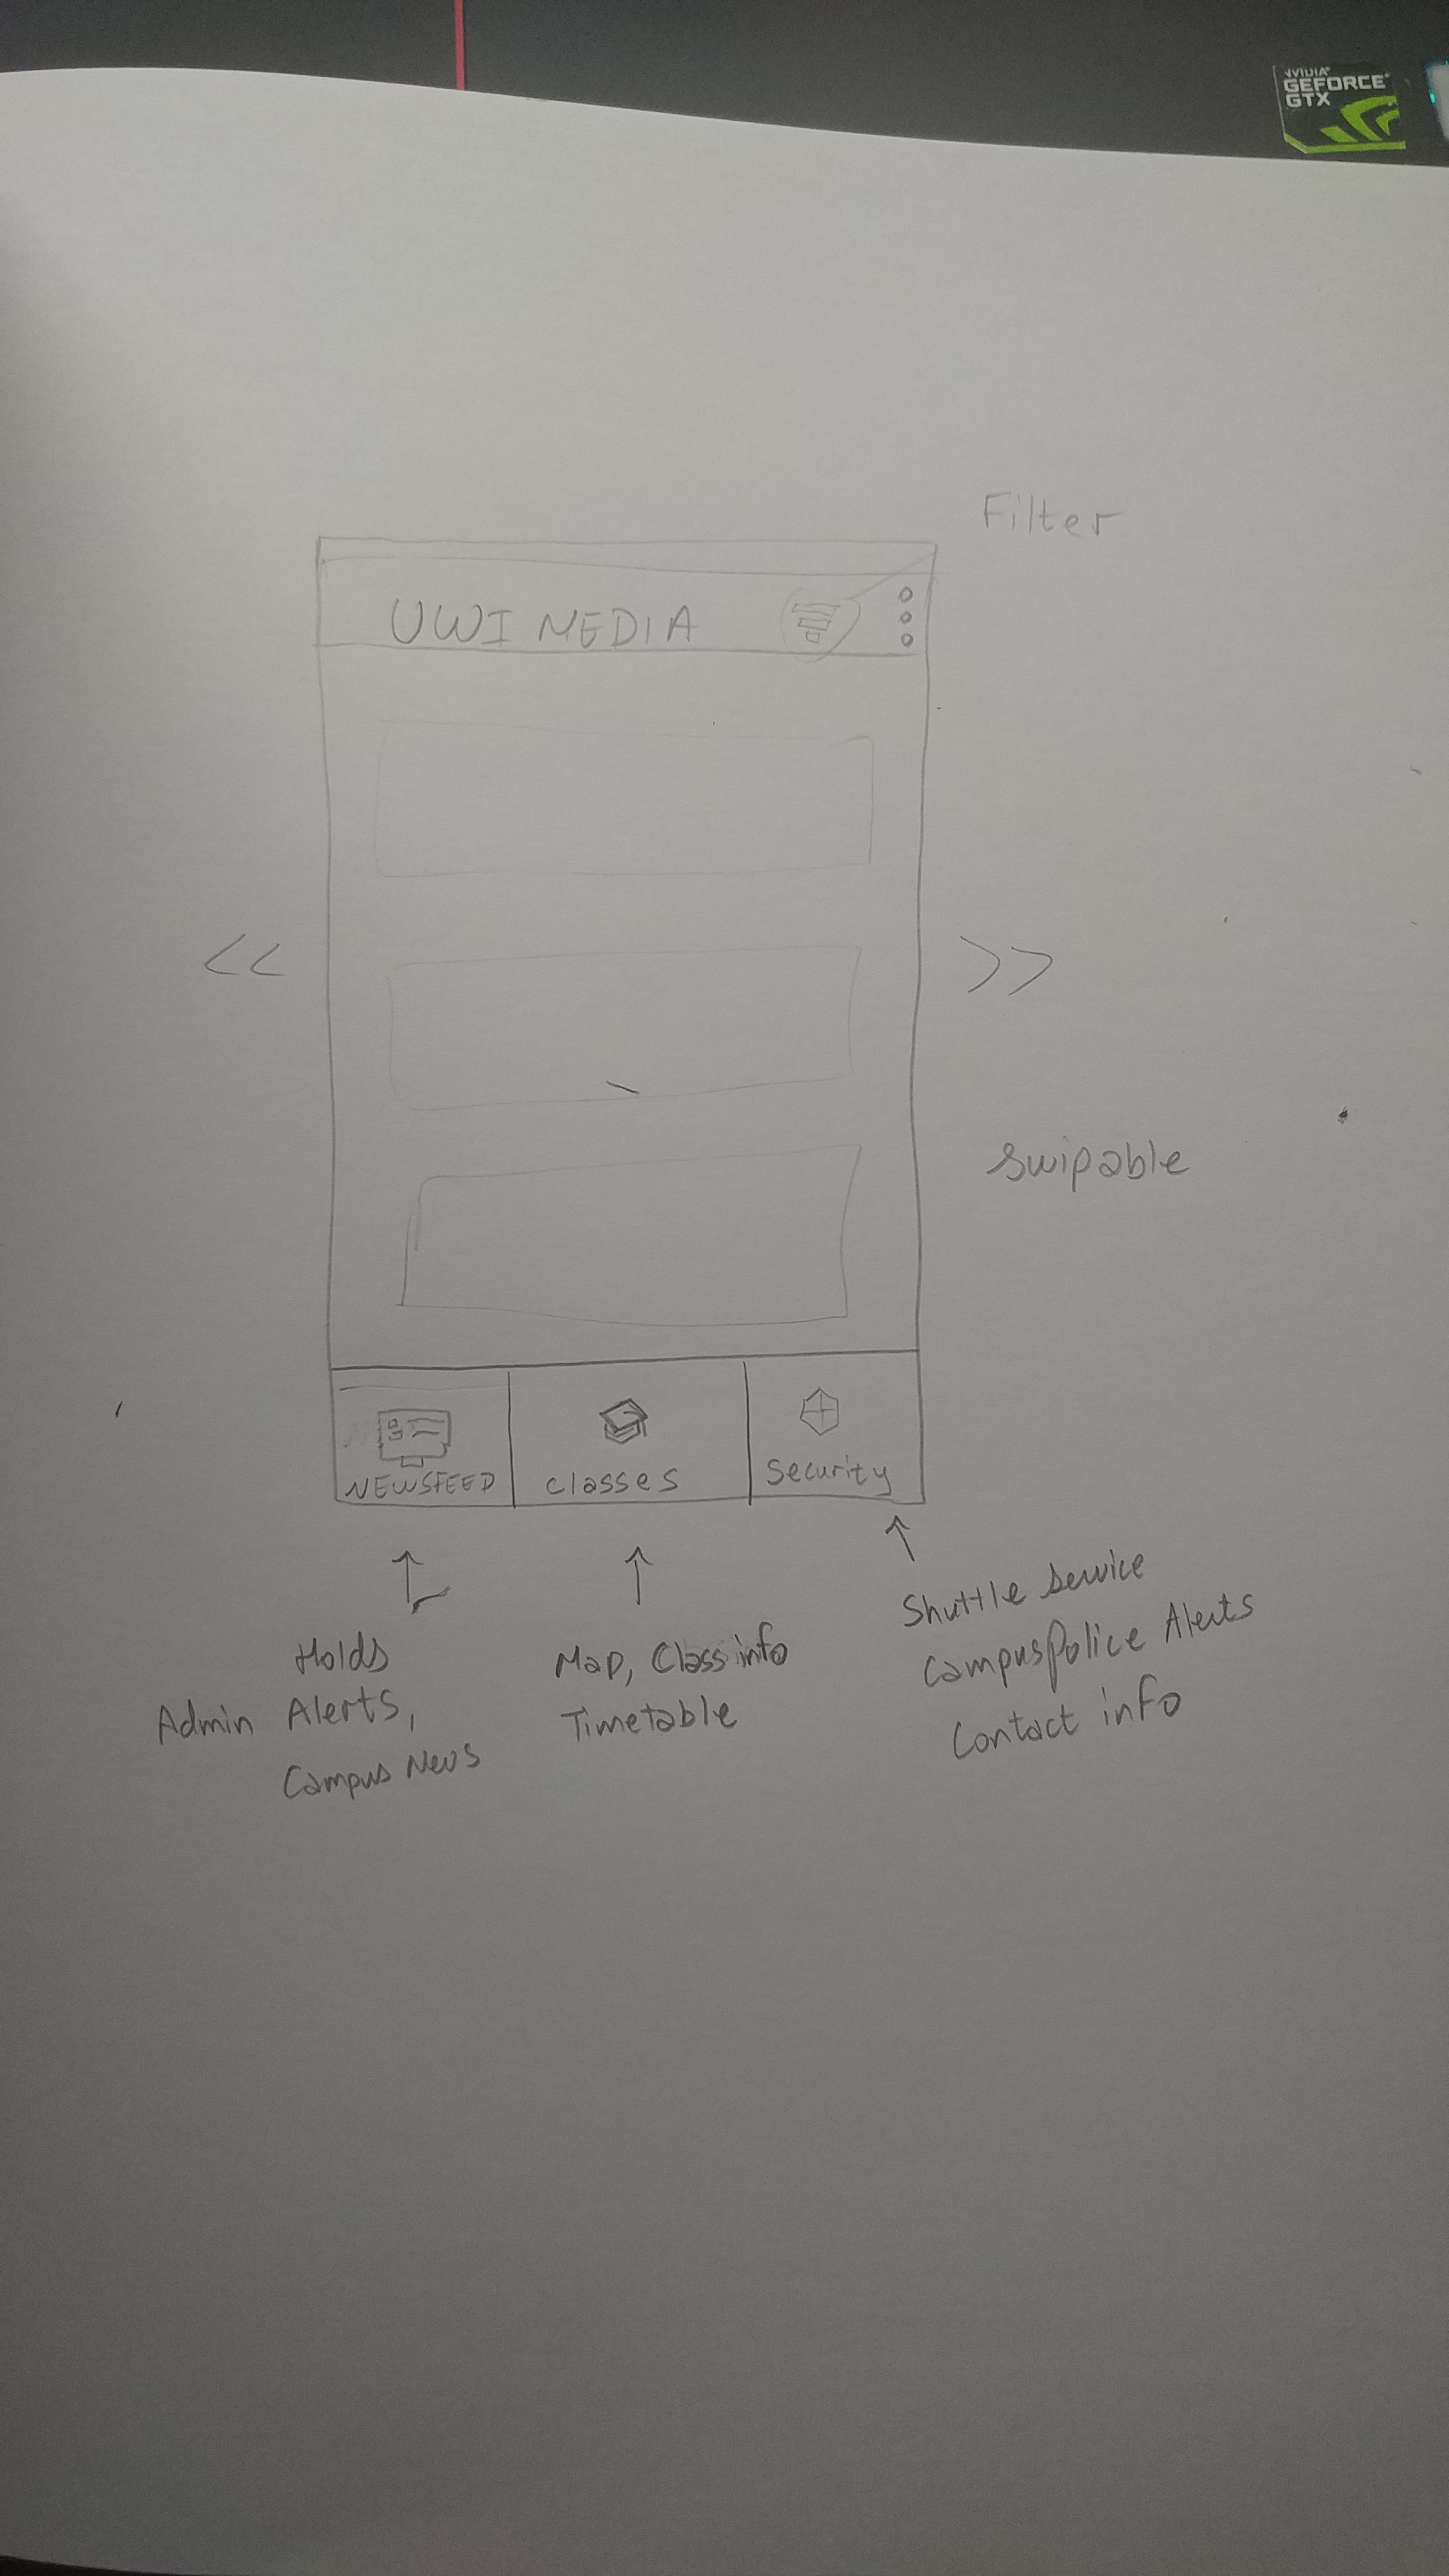 NVIDIA
GEFORCE
GTX
Filter
UWI MEDIA
<< >>
Swipable
NEWSFEED
classes
Security
Holds
Admin Alerts,
Campus News
Map, Class info
Timetable
Shuttle Service
Campus Police Alerts
Contact info